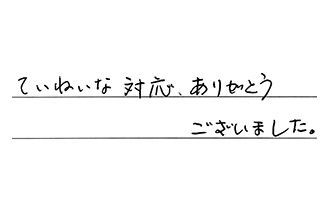 ていねいな対応、ありがとう
ございました。